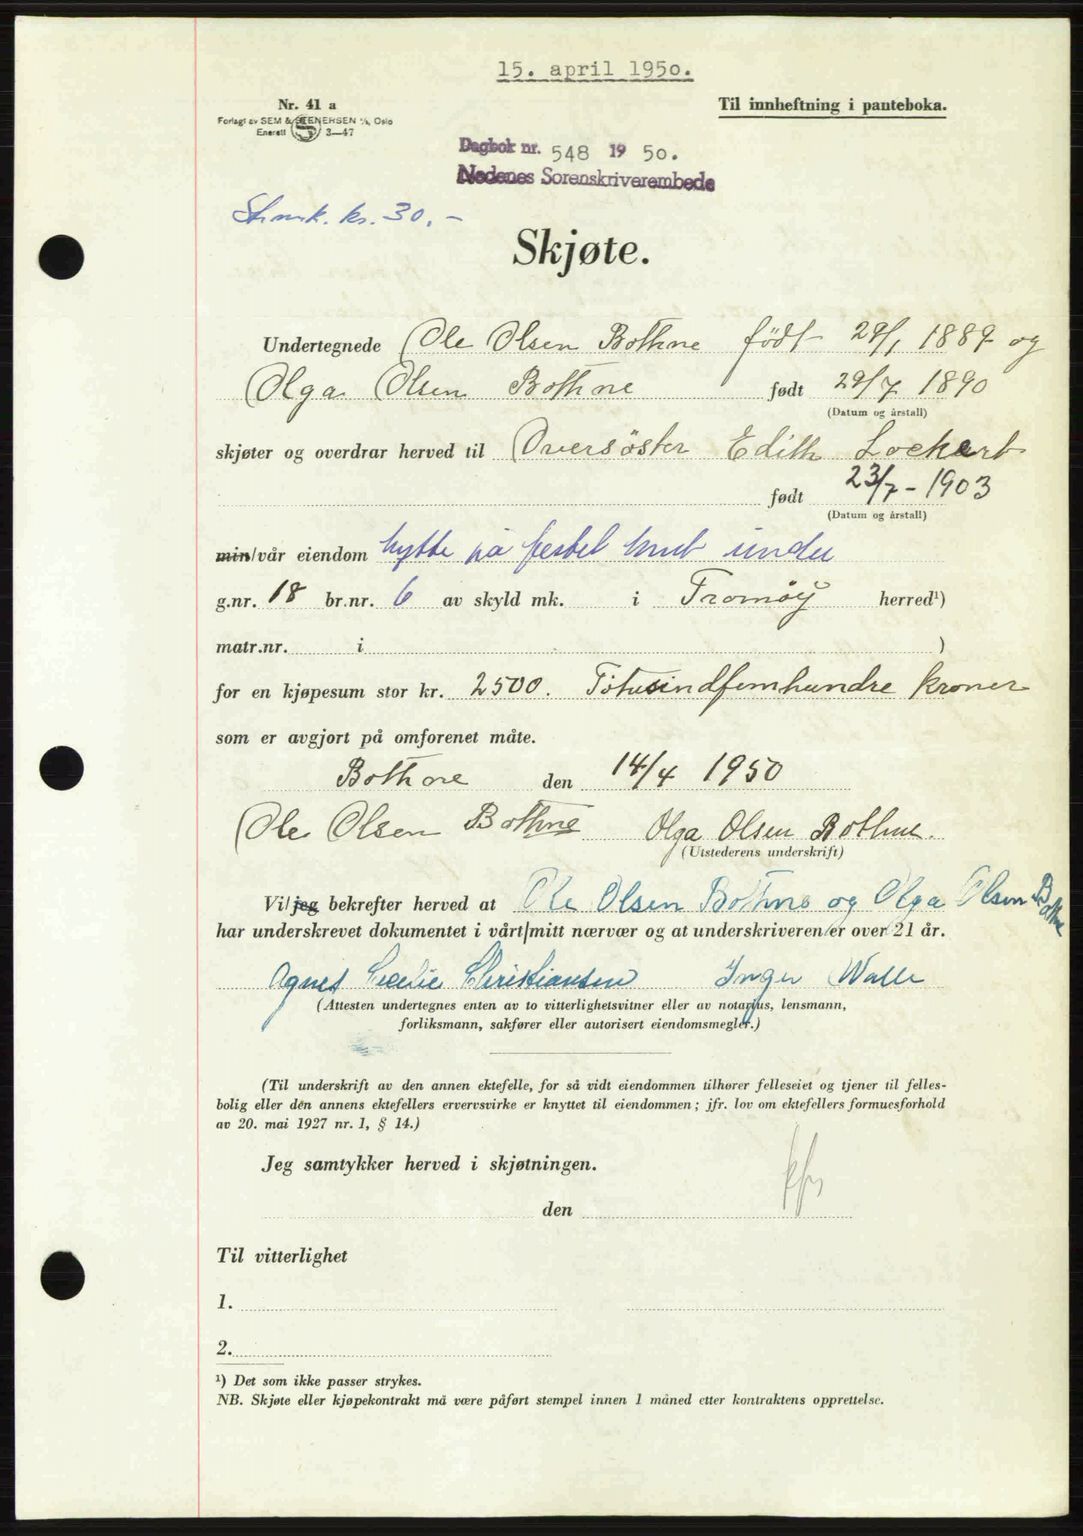 15. april 1950.
Nr. 41 a
Til innheftning i panteboka.
Forlagt av SEM & STENERSEN A/S, Oslo
Enerett 3—47
Dagbok nr. 548 1950.
Nedenes Sorenskriverembede
St.mrk. kr. 30,-
Skjøte.
Undertegnede Ole Olsen Bothne født 29/1 1889 og
Olga Olsen Bothne født 29/7 1890
(Datum og årstall)
skjøter og overdrar herved til Oversøster Edith Lockert
født 23/7-1903
(Datum og årstall)
min/vår eiendom hytte på festet tomt under
g.nr. 18 br.nr. 6 av skyld mk. i Tromøy herred¹)
matr.nr. i )
for en kjøpesum stor kr. 2500. Totusindfemhundre kroner
som er avgjort på omforenet måte.
Bothne den 14/4 1950
Ole Olsen Bothne Olga Olsen Bothne.
(Utstederens underskrift)
Vi/jeg bekrefter herved at Ole Olsen Bothne og Olga Olsen Bothne
har underskrevet dokumentet i vårt/mitt nærvær og at underskriveren/er over 21 år.
Agnes Cecilie Christiansen Inger Walle
(Attesten undertegnes enten av to vitterlighetsvitner eller av notarius, lensmann,
forliksmann, sakfører eller autorisert eiendomsmegler.)
(Til underskrift av den annen ektefelle, for så vidt eiendommen tilhører felleseiet og tjener til felles-
bolig eller den annens ektefellers ervervsvirke er knyttet til eiendommen; jfr. lov om ektefellers formuesforhold
av 20. mai 1927 nr. 1, § 14.)
Jeg samtykker herved i skjøtningen.
den
Til vitterlighet
1.
2.
¹) Det som ikke passer strykes.
NB. Skjøte eller kjøpekontrakt må være påført stempel innen 1 måned etter kontraktens opprettelse.